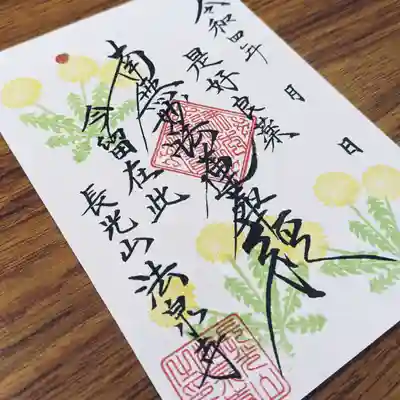 令和四年 月 日
是好良薬
南無妙法蓮華経
今留在此
長光山 法泉寺